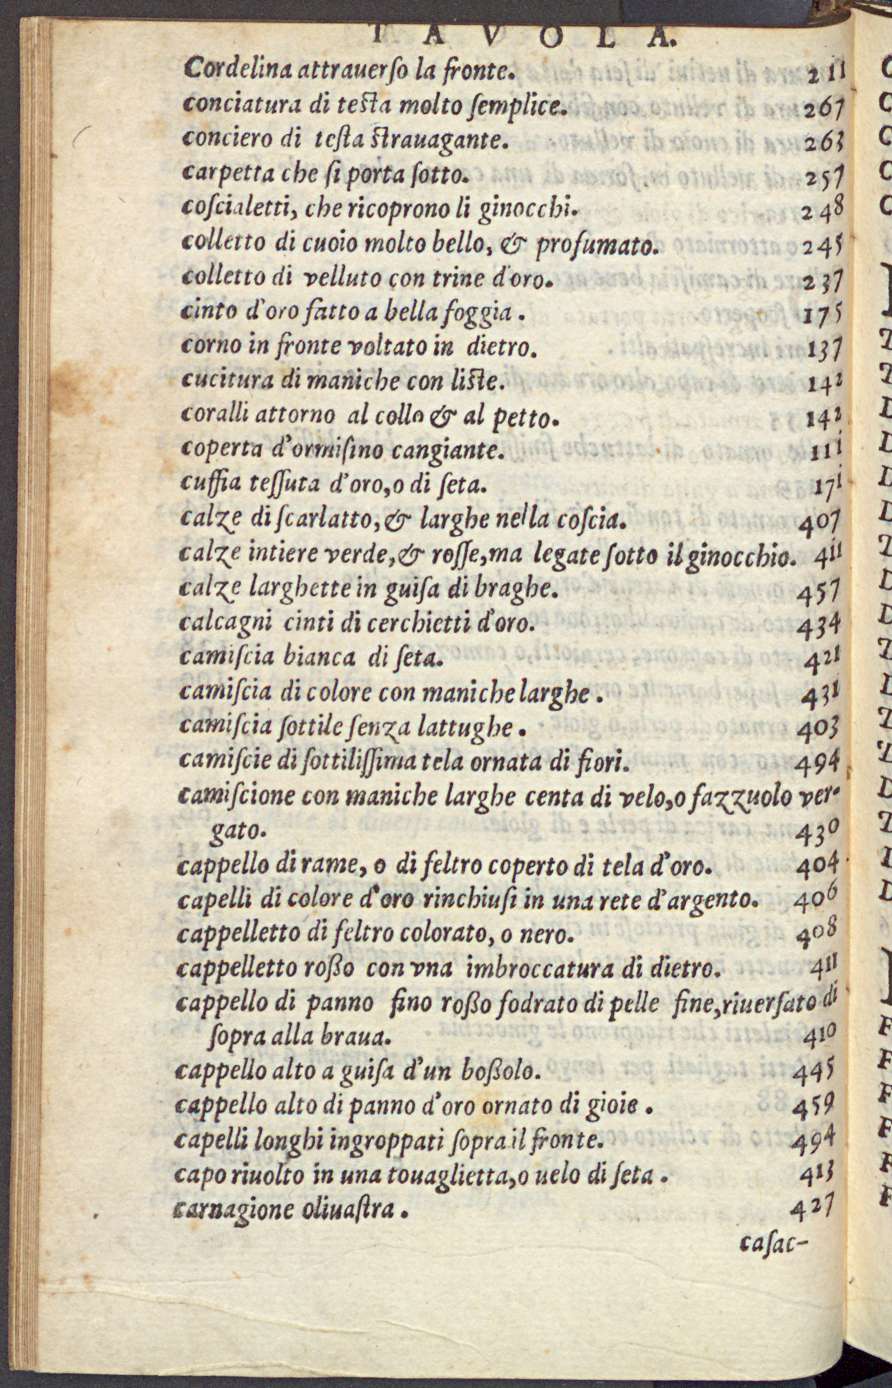 TAVOLA.
Cordelina attrauerſo la fronte. 211
conciatura di teſta molto ſemplice. 267
conciero di teſta ſtrauagante. 263
carpetta che ſi porta ſotto. 257
coſcialetti, che ricoprono li ginocchi. 248
colletto di cuoio molto bello, & profumato. 245
colletto di velluto con trine d'oro. 237
cinto d'oro fatto a bella foggia . 175
corno in fronte voltato in dietro. 137
cucitura di maniche con liſte. 142
coralli attorno al collo & al petto. 142
coperta d'ormiſino cangiante. 111
cuffia teſſuta d'oro,o di ſeta. 171
calze di ſcarlatto,& larghe nella coſcia. 407
calze intiere verde,& roſſe,ma legate ſotto il ginocchio. 411
calze larghette in guiſa di braghe. 457
calcagni cinti di cerchietti d'oro. 434
camiſcia bianca di ſeta. 421
camiſcia di colore con maniche larghe . 431
camiſcia ſottile ſenza lattughe . 403
camiſcie di ſottiliſſima tela ornata di fiori. 494
camiſcione con maniche larghe centa di velo,o fazzuolo ver-
gato. 430
cappello di rame, o di feltro coperto di tela d'oro. 404
capelli di colore d'oro rinchiuſi in una rete d'argento. 406
cappelletto di feltro colorato, o nero. 408
cappelletto roßo con vna imbroccatura di dietro. 411
cappello di panno fino roßo fodrato di pelle fine,riuerſato di
ſopra alla braua. 410
cappello alto a guiſa d'un boßolo. 445
cappello alto di panno d'oro ornato di gioie . 459
capelli longhi ingroppati ſopra il fronte. 494
capo riuolto in una touaglietta,o uelo di ſeta . 413
carnagione oliuaſtra . 427
caſac-